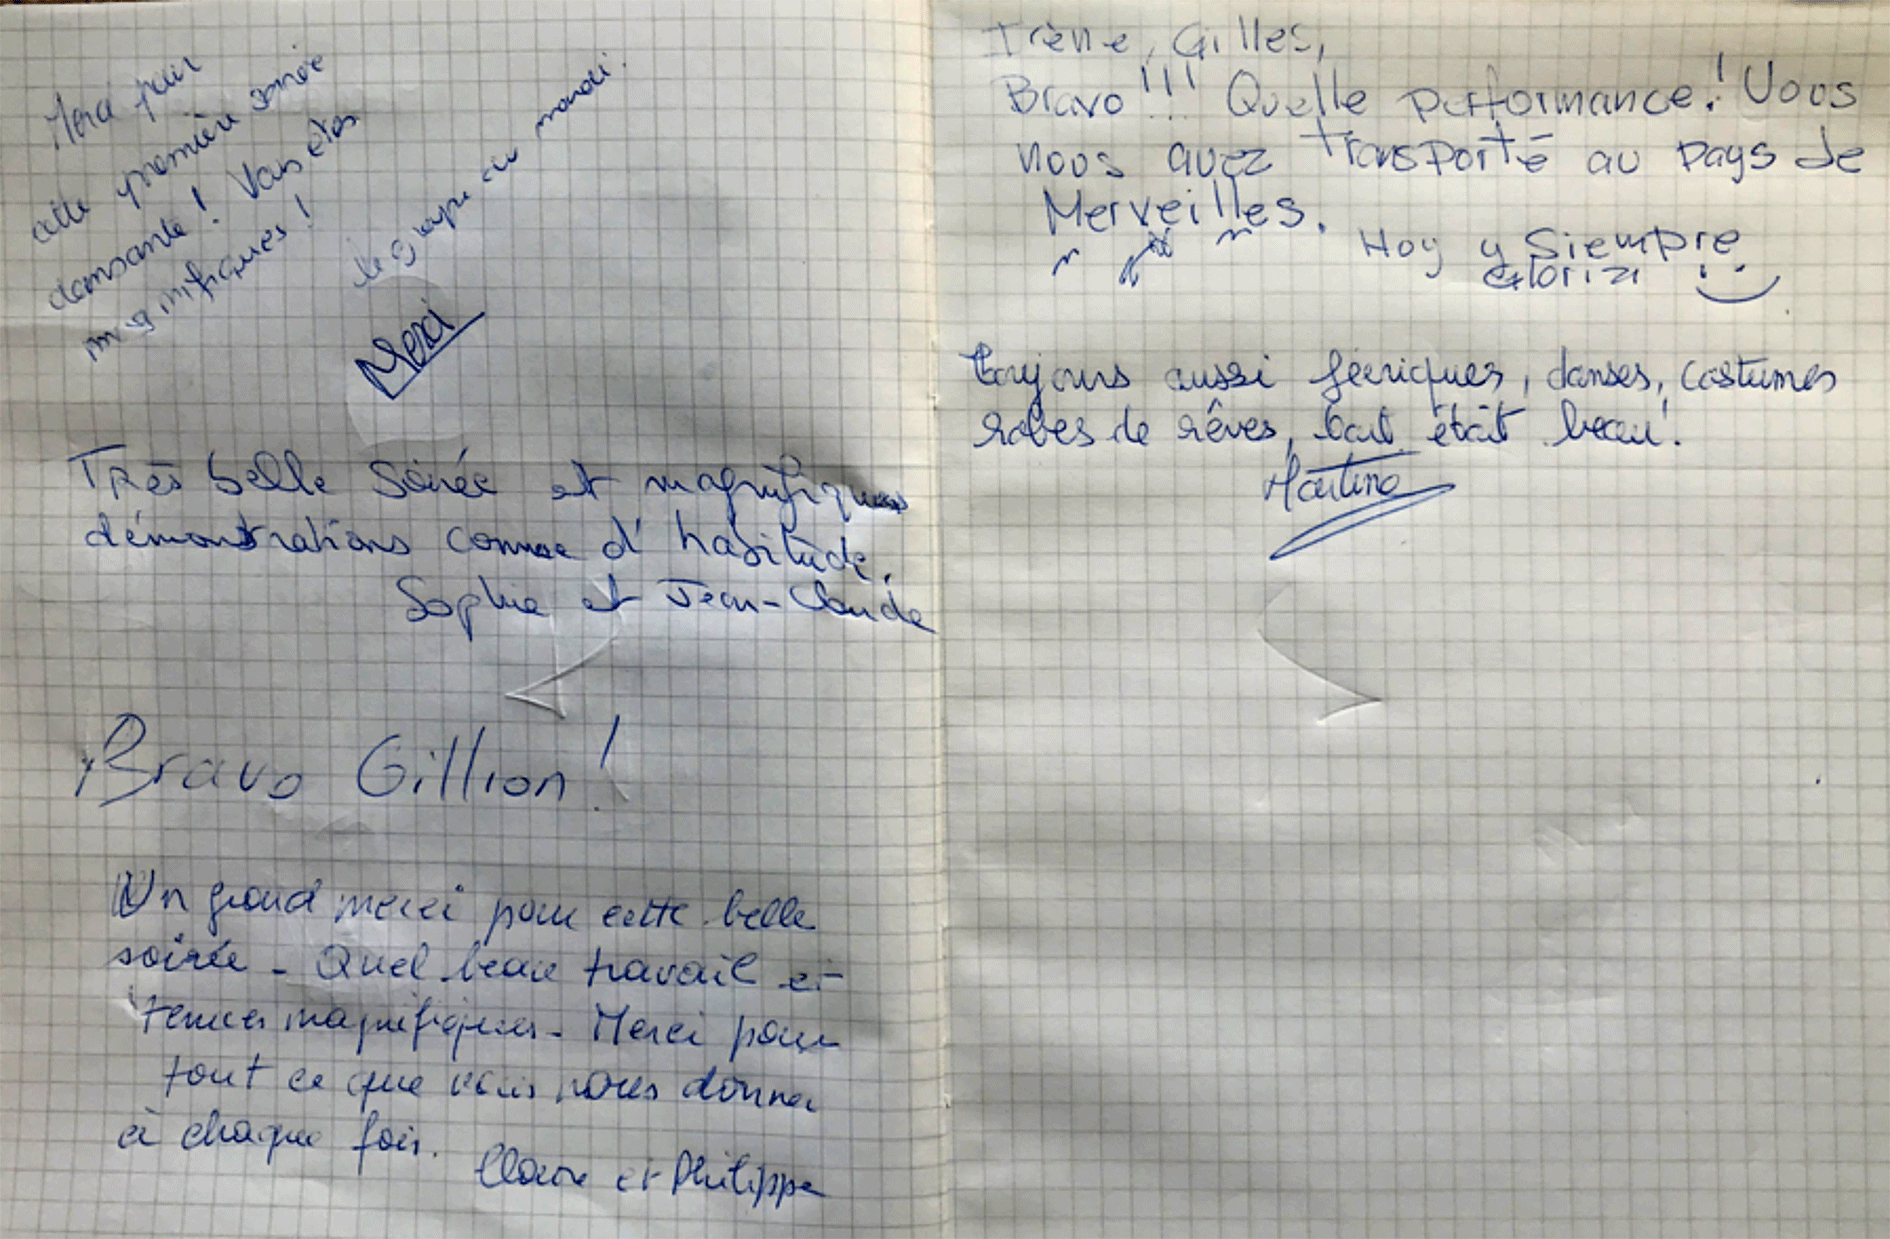 Merci pour
cette première soirée
dansante ! Vous êtes
magnifiques !
le groupe du mardi.
Merci
Très belle soirée et magnifiques
démonstrations comme d'habitude.
Sophie et Jean-Claude
Bravo Gillion !
Un grand merci pour cette belle
soirée - Quel beau travail et
tenues magnifiques - Merci pour
tout ce que vous nous donnez
à chaque fois.
Claire et Philippe
Irène, Gilles,
Bravo !!! Quelle performance ! Vous
nous avez transporté au pays de
Merveilles.
Hoy y Siempre
toujours aussi féeriques, danses, costumes
robes de rêves, tout était beau !
Martine